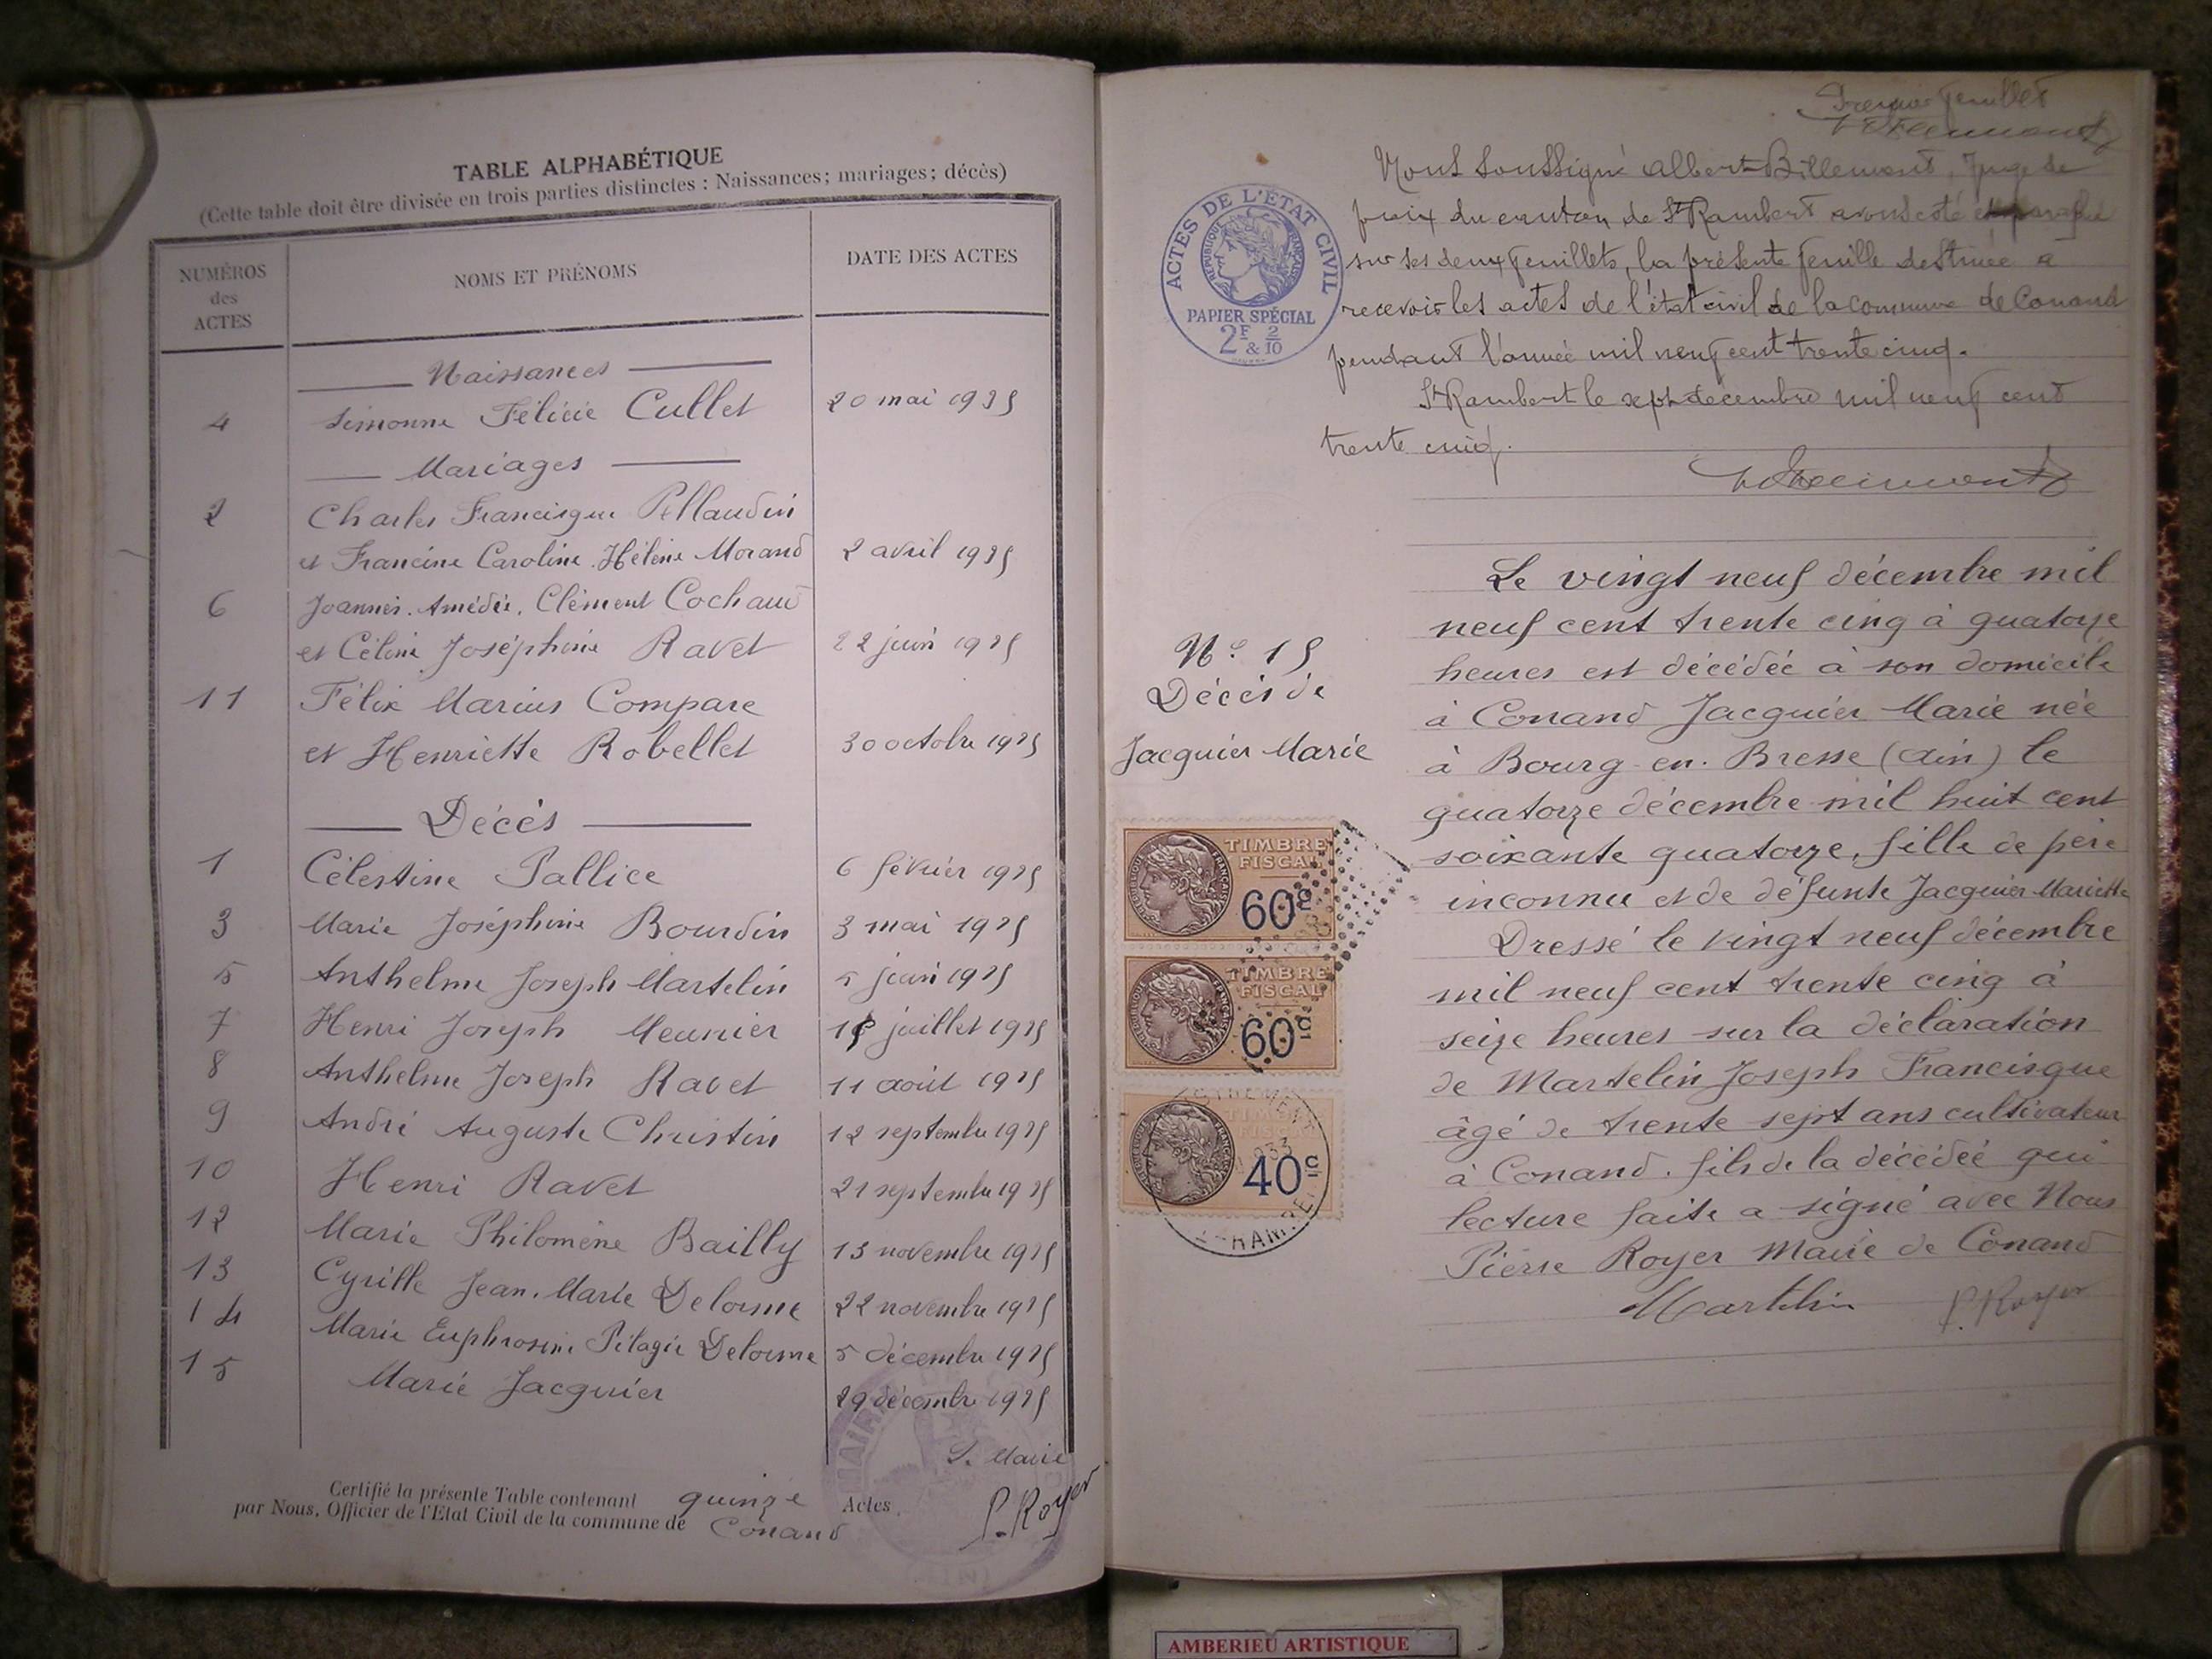 TABLE ALPHABÉTIQUE
(Cette table doit être divisée en trois parties distinctes : Naissances; mariages; décès)
NUMÉROS
des
ACTES
NOMS ET PRÉNOMS
DATE DES ACTES
Naissances
4 Simonne Félicie Cullet 20 mai 1935
Mariages
2 Charles Francisque Pellaudin
et Francine Caroline Hélène Morand 2 avril 1935
6 Joannès Amédée Clément Cochaud
et Céline Joséphine Ravet 22 juin 1935
11 Félix Marius Compare
et Henriette Robellet 30 octobre 1935
Décès
1 Célestine Pallice 6 février 1935
3 Marie Joséphine Bourdin 3 mai 1935
5 Anthelme Joseph Martelin 5 juin 1935
7 Henri Joseph Meunier juillet 1935
8 Anthelme Joseph Ravet 11 août 1935
9 André Auguste Christin 12 septembre 1935
10 Henri Ravet 21 septembre 1935
12 Marie Philomène Bailly 13 novembre 1935
13 Cyrille Jean-Marie Delorme 22 novembre 1935
14 Marie Euphrosine Pélagie Delorme 5 décembre 1935
15 Marie Jacquier 29 décembre 1935
Certifié la présente Table contenant quinze Actes.
par Nous, Officier de l'Etat Civil de la commune de Conand
L. Maire
P. Royer
MAIRIE
(AIN)
Premier feuillet
ACTES DE L'ÉTAT CIVIL
RÉPUBLIQUE FRANÇAISE
PAPIER SPÉCIAL
2F & 2/10
Nous soussigné Albert Billemont, Juge de
paix du canton de St Rambert avons coté et paraphé
sur ses deux feuillets, la présente feuille destinée à
recevoir les actes de l'état civil de la commune de Conand
pendant l'année mil neuf cent trente cinq.
St Rambert le sept décembre mil neuf cent
trente cinq.
N° 15
Décès de
Jacquier Marie
TIMBRE
FISCAL
60c
TIMBRE
FISCAL
60c
40c
Le vingt neuf décembre mil
neuf cent trente cinq à quatorze
heures est décédée à son domicile
à Conand Jacquier Marie née
à Bourg-en-Bresse (Ain) le
quatorze décembre mil huit cent
soixante quatorze, fille de père
inconnu et de défunte Jacquier Mariette
Dressé le vingt neuf décembre
mil neuf cent trente cinq à
seize heures sur la déclaration
de Martelin Joseph Francisque
âgé de trente sept ans cultivateur
à Conand. fils de la décédée qui
lecture faite a signé avec Nous
Pierre Royer Maire de Conand
Martelin P. Royer
AMBERIEU ARTISTIQUE